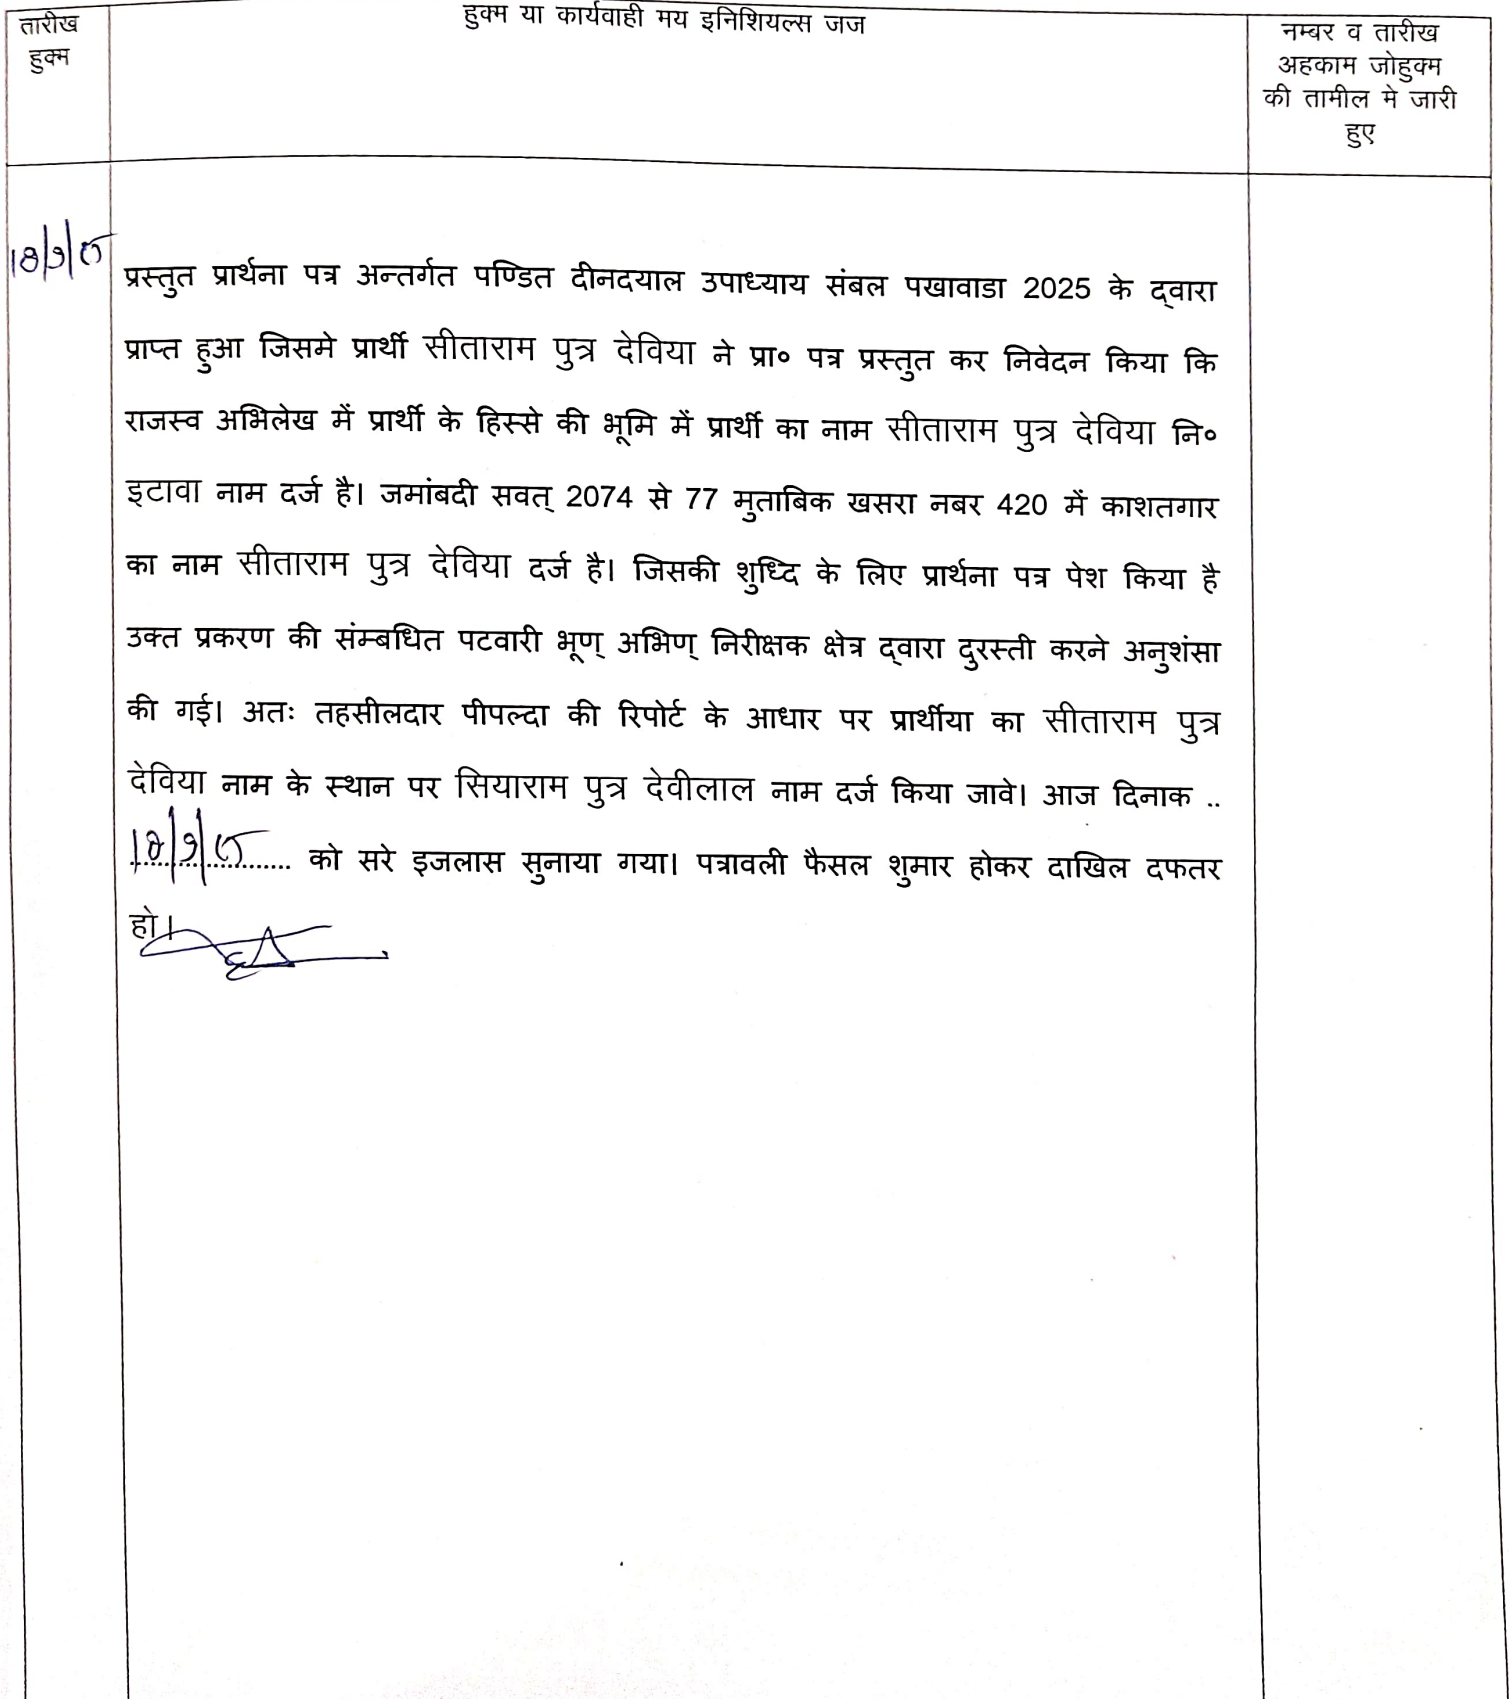 तारीख
हुक्म
हुक्म या कार्यवाही मय इनिशियल्स जज
नम्बर व तारीख
अहकाम जोहुक्म
की तामील मे जारी
हुए
प्रस्तुत प्रार्थना पत्र अन्तर्गत पण्डित दीनदयाल उपाध्याय संबल पखावाडा 2025 के द्वारा
प्राप्त हुआ जिसमे प्रार्थी सीताराम पुत्र देविया ने प्रा० पत्र प्रस्तुत कर निवेदन किया कि
राजस्व अभिलेख में प्रार्थी के हिस्से की भूमि में प्रार्थी का नाम सीताराम पुत्र देविया नि०
इटावा नाम दर्ज है। जमांबदी सवत् 2074 से 77 मुताबिक खसरा नबर 420 में काशतगार
का नाम सीताराम पुत्र देविया दर्ज है। जिसकी शुध्दि के लिए प्रार्थना पत्र पेश किया है
उक्त प्रकरण की संम्बधित पटवारी भूण् अभिण् निरीक्षक क्षेत्र द्वारा दुरस्ती करने अनुशंसा
की गई। अतः तहसीलदार पीपल्दा की रिपोर्ट के आधार पर प्रार्थीया का सीताराम पुत्र
देविया नाम के स्थान पर सियाराम पुत्र देवीलाल नाम दर्ज किया जावे। आज दिनाक ..
को सरे इजलास सुनाया गया। पत्रावली फैसल शुमार होकर दाखिल दफतर
हो।